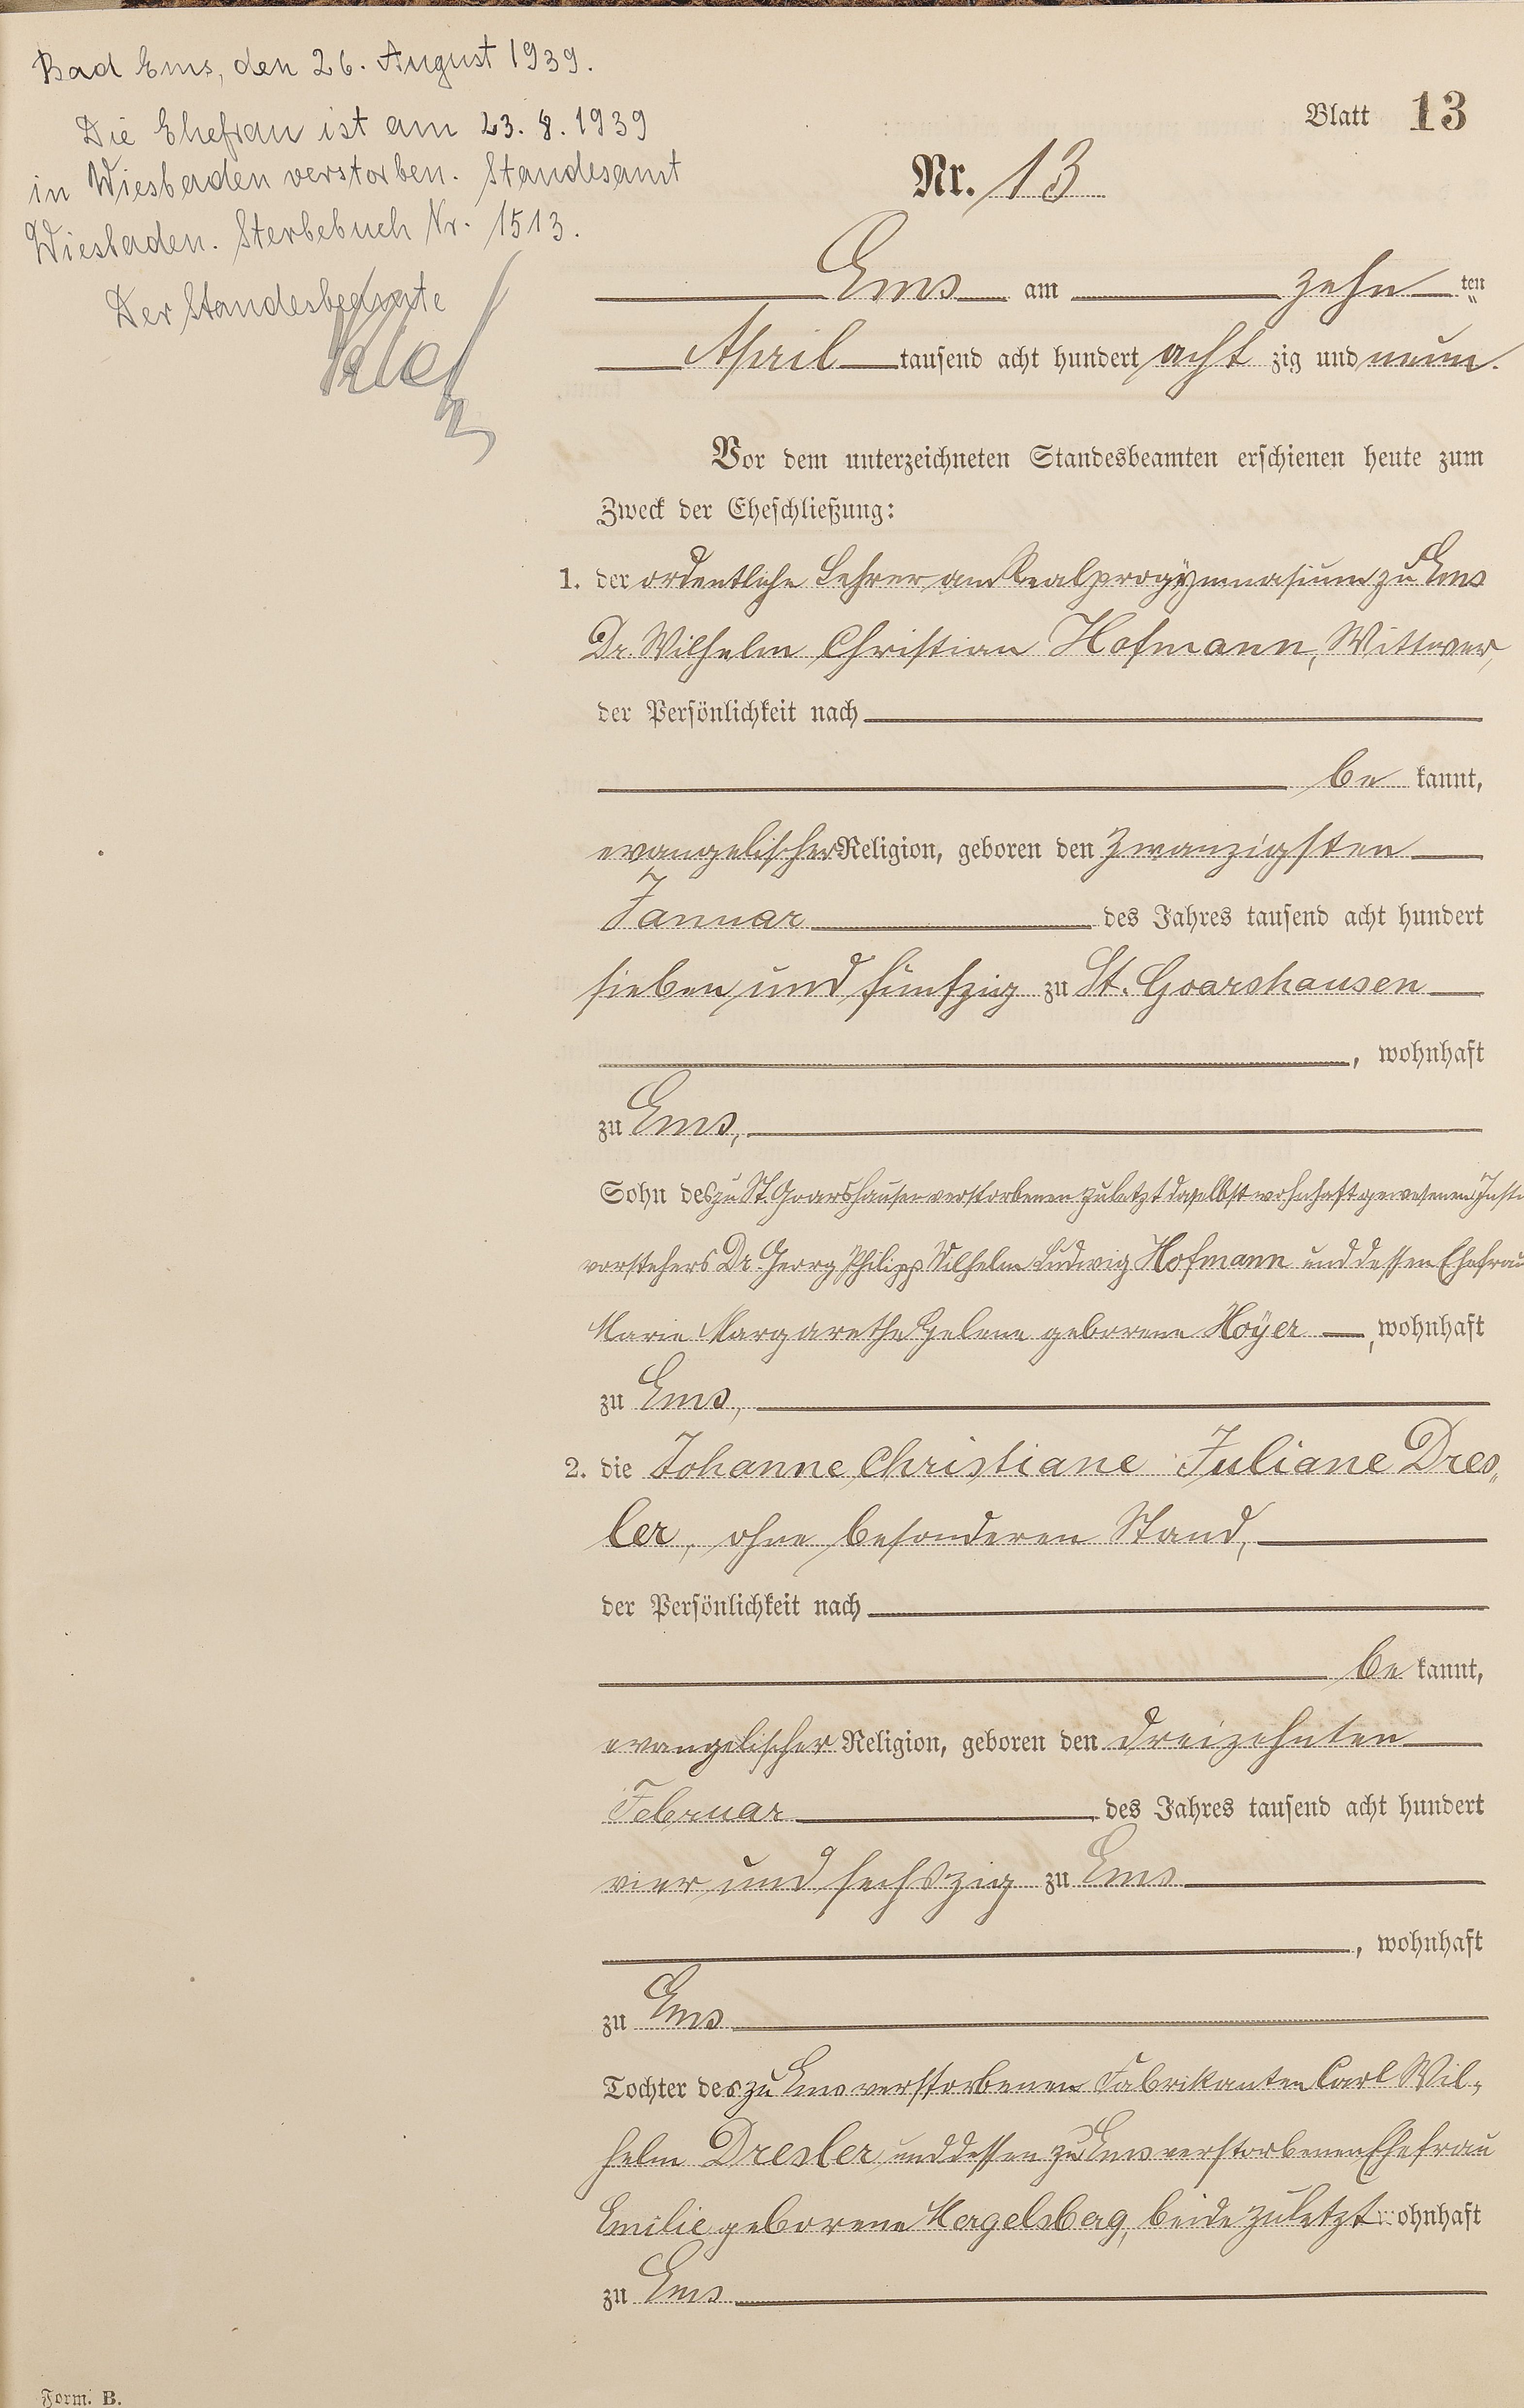 Bad Ems, den 26. August 1939.
Die Ehefrau ist am 23. 8. 1939
in Wiesbaden verstorben. Standesamt
Wiesbaden. Sterbebuch Nr. 1513.
Der Standesbeamte
Blatt 13
Nr. 13
Ems am zehn ten
April tausend acht hundert acht zig und neun.
Vor dem unterzeichneten Standesbeamten erschienen heute zum
Zweck der Eheschließung:
1. der ordentliche Lehrer am Realprogymnasium zu Ems
Dr. Wilhelm Christian Hofmann, Wittwer,
der Persönlichkeit nach
be kannt,
evangelischer Religion, geboren den zwanzigsten
Januar des Jahres tausend acht hundert
sieben und fünfzig zu St. Goarshausen
, wohnhaft
zu Ems,
Sohn des zu St. Goarshausen verstorbenen zuletzt daselbst wohnhaft gewesenen
vorstehers Dr. Georg Philipp Wilhelm Ludwig Hofmann und dessen Ehefrau
Marie Margarethe Helene geborene Hoÿer, wohnhaft
zu Ems,
2. die Johanne Christiane Juliane Dres„
ler, ohne besonderen Stand,
der Persönlichkeit nach
be kannt,
evangelischer Religion, geboren den dreizehnten
Februar des Jahres tausend acht hundert
vier und sechszig zu Ems
, wohnhaft
zu Ems
Tochter des zu Ems verstorbenen Fabrikanten Carl Wil„
helm Dresler und dessen zu Ems verstorbenen Ehefrau
Emilie geborene Hergelsberg, beide zuletzt wohnhaft
zu Ems
Form. B.